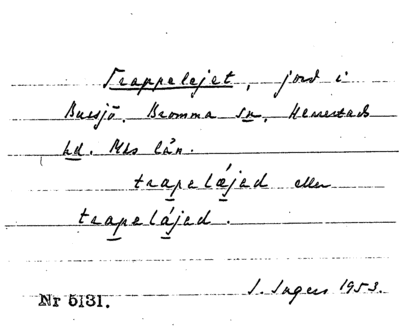 Trappelejet, jord i
Bussjö. Bromma sn, Herrestads
hd. Mhs län.
trapelæ̨jed eller
trapelájed.
Nr 5131. I. Ingers 1953.